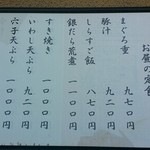 お昼の定食
まぐろ重 九七〇円
豚汁 九二〇円
しらすご飯 八七〇円
銀だら荒煮 一一〇〇円
すき焼き 一〇〇〇円
いわし天ぷら 九二〇円
穴子天ぷら 一〇〇〇円